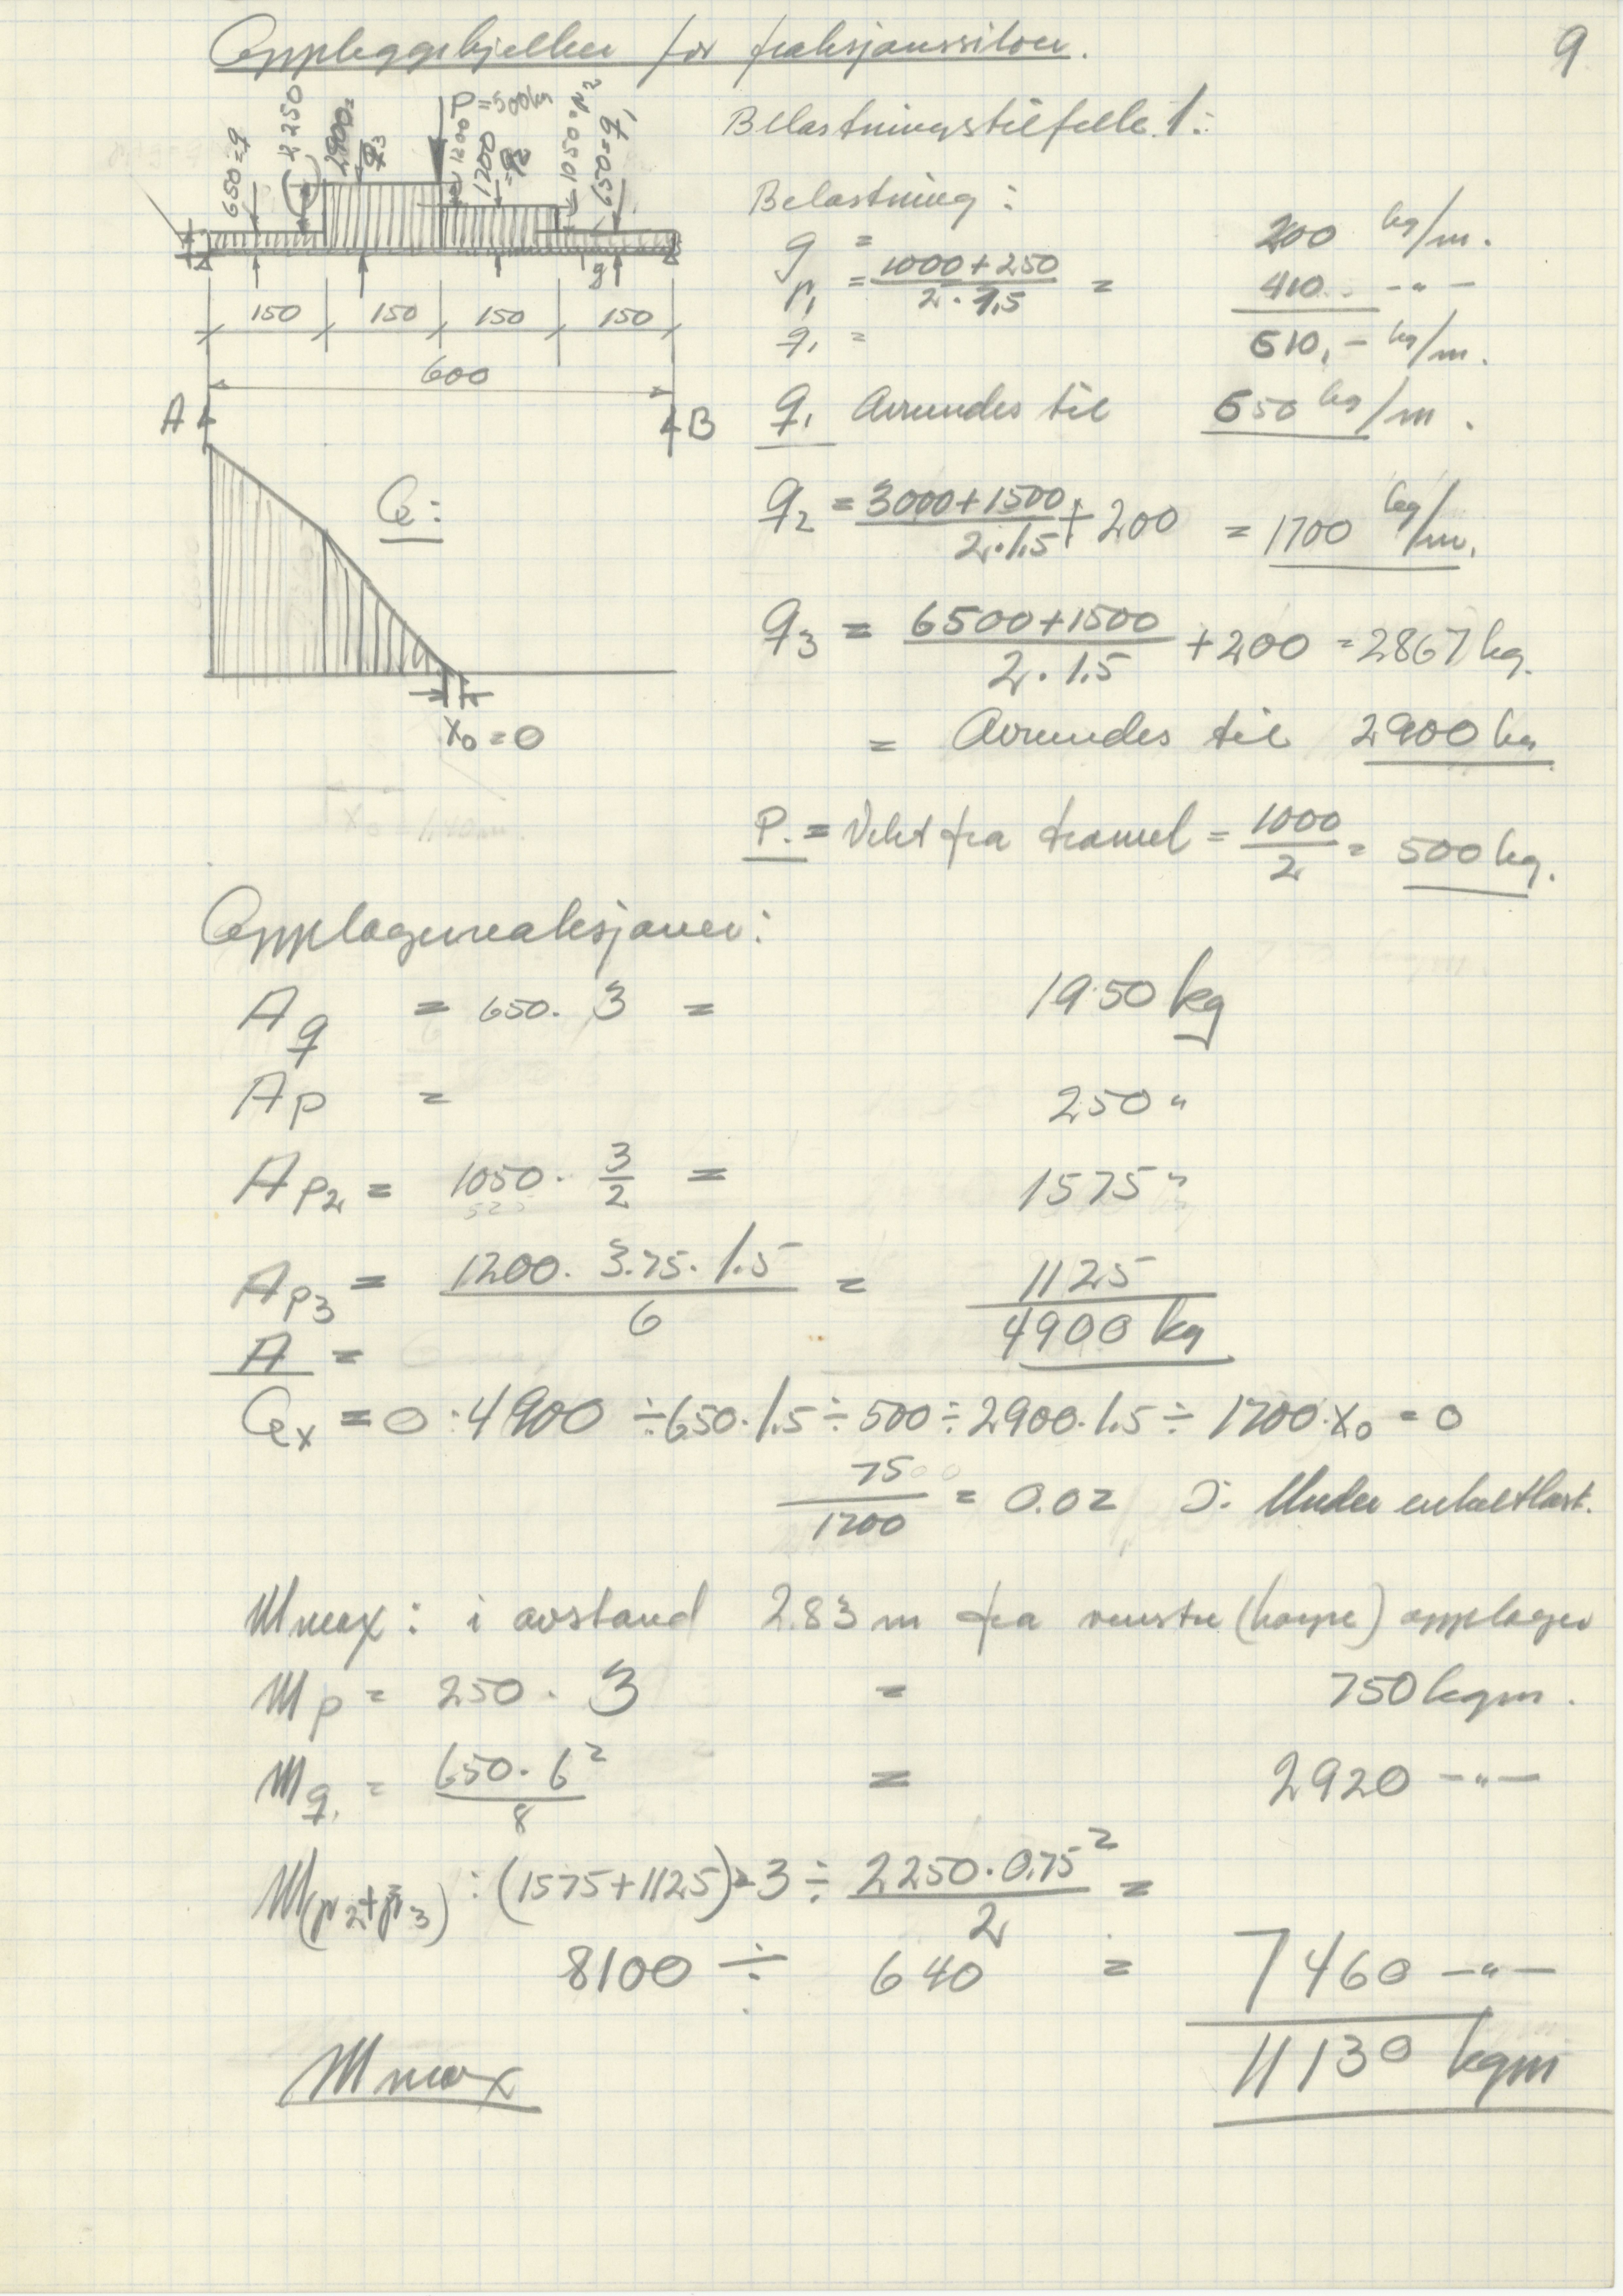 Oppleggsbjelker for fraksjonssiloer.
9
650=q
2250
2900=
q3
P=500kg
1200
1200
=q2
1050=p2
650=q1
g
150 150 150 150
600
A B
Q:
x0=0
Belastningstilfelle 1:
Belastning:
g = 200 kg/m.
p1 = 1000+250 / 2·1,5 = 410.- -"-
q1 = 610,- kg/m.
q1 Avrundes til 650 kg/m.
q2 = 3000+1500 / 2·1.5 + 200 = 1700 kg/m.
q3 = 6500+1500 / 2·1.5 + 200 = 2867 kg.
= Avrundes til 2900 kg
P. = Vekt fra tromel = 1000 / 2 = 500 kg.
Opplagerreaksjoner:
Aq = 650. 3 = 1950 kg
Ap = 250 "
Ap2 = 1050. 3/2 = 1575 "
Ap3 = 1200. 3.75. 1.5 / 6 = 1125
A = 4900 kg
Qx = 0 : 4900 ÷ 650·1.5 ÷ 500 ÷ 2900·1.5 ÷ 1700·x0 = 0
75 / 1700 = 0.02 Ɔ: Under enkeltlast.
Mmax: i avstand 2.83 m fra venstre (høyre) opplager
Mp = 250 · 3 = 750 kgm.
Mq1 = 650·6² / 8 = 2920 -"-
M(p2+p3) : (1575+1125)·3 ÷ 2250·0.75² / 2 =
8100 ÷ 640 = 7460 -"-
Mmax 11130 kgm